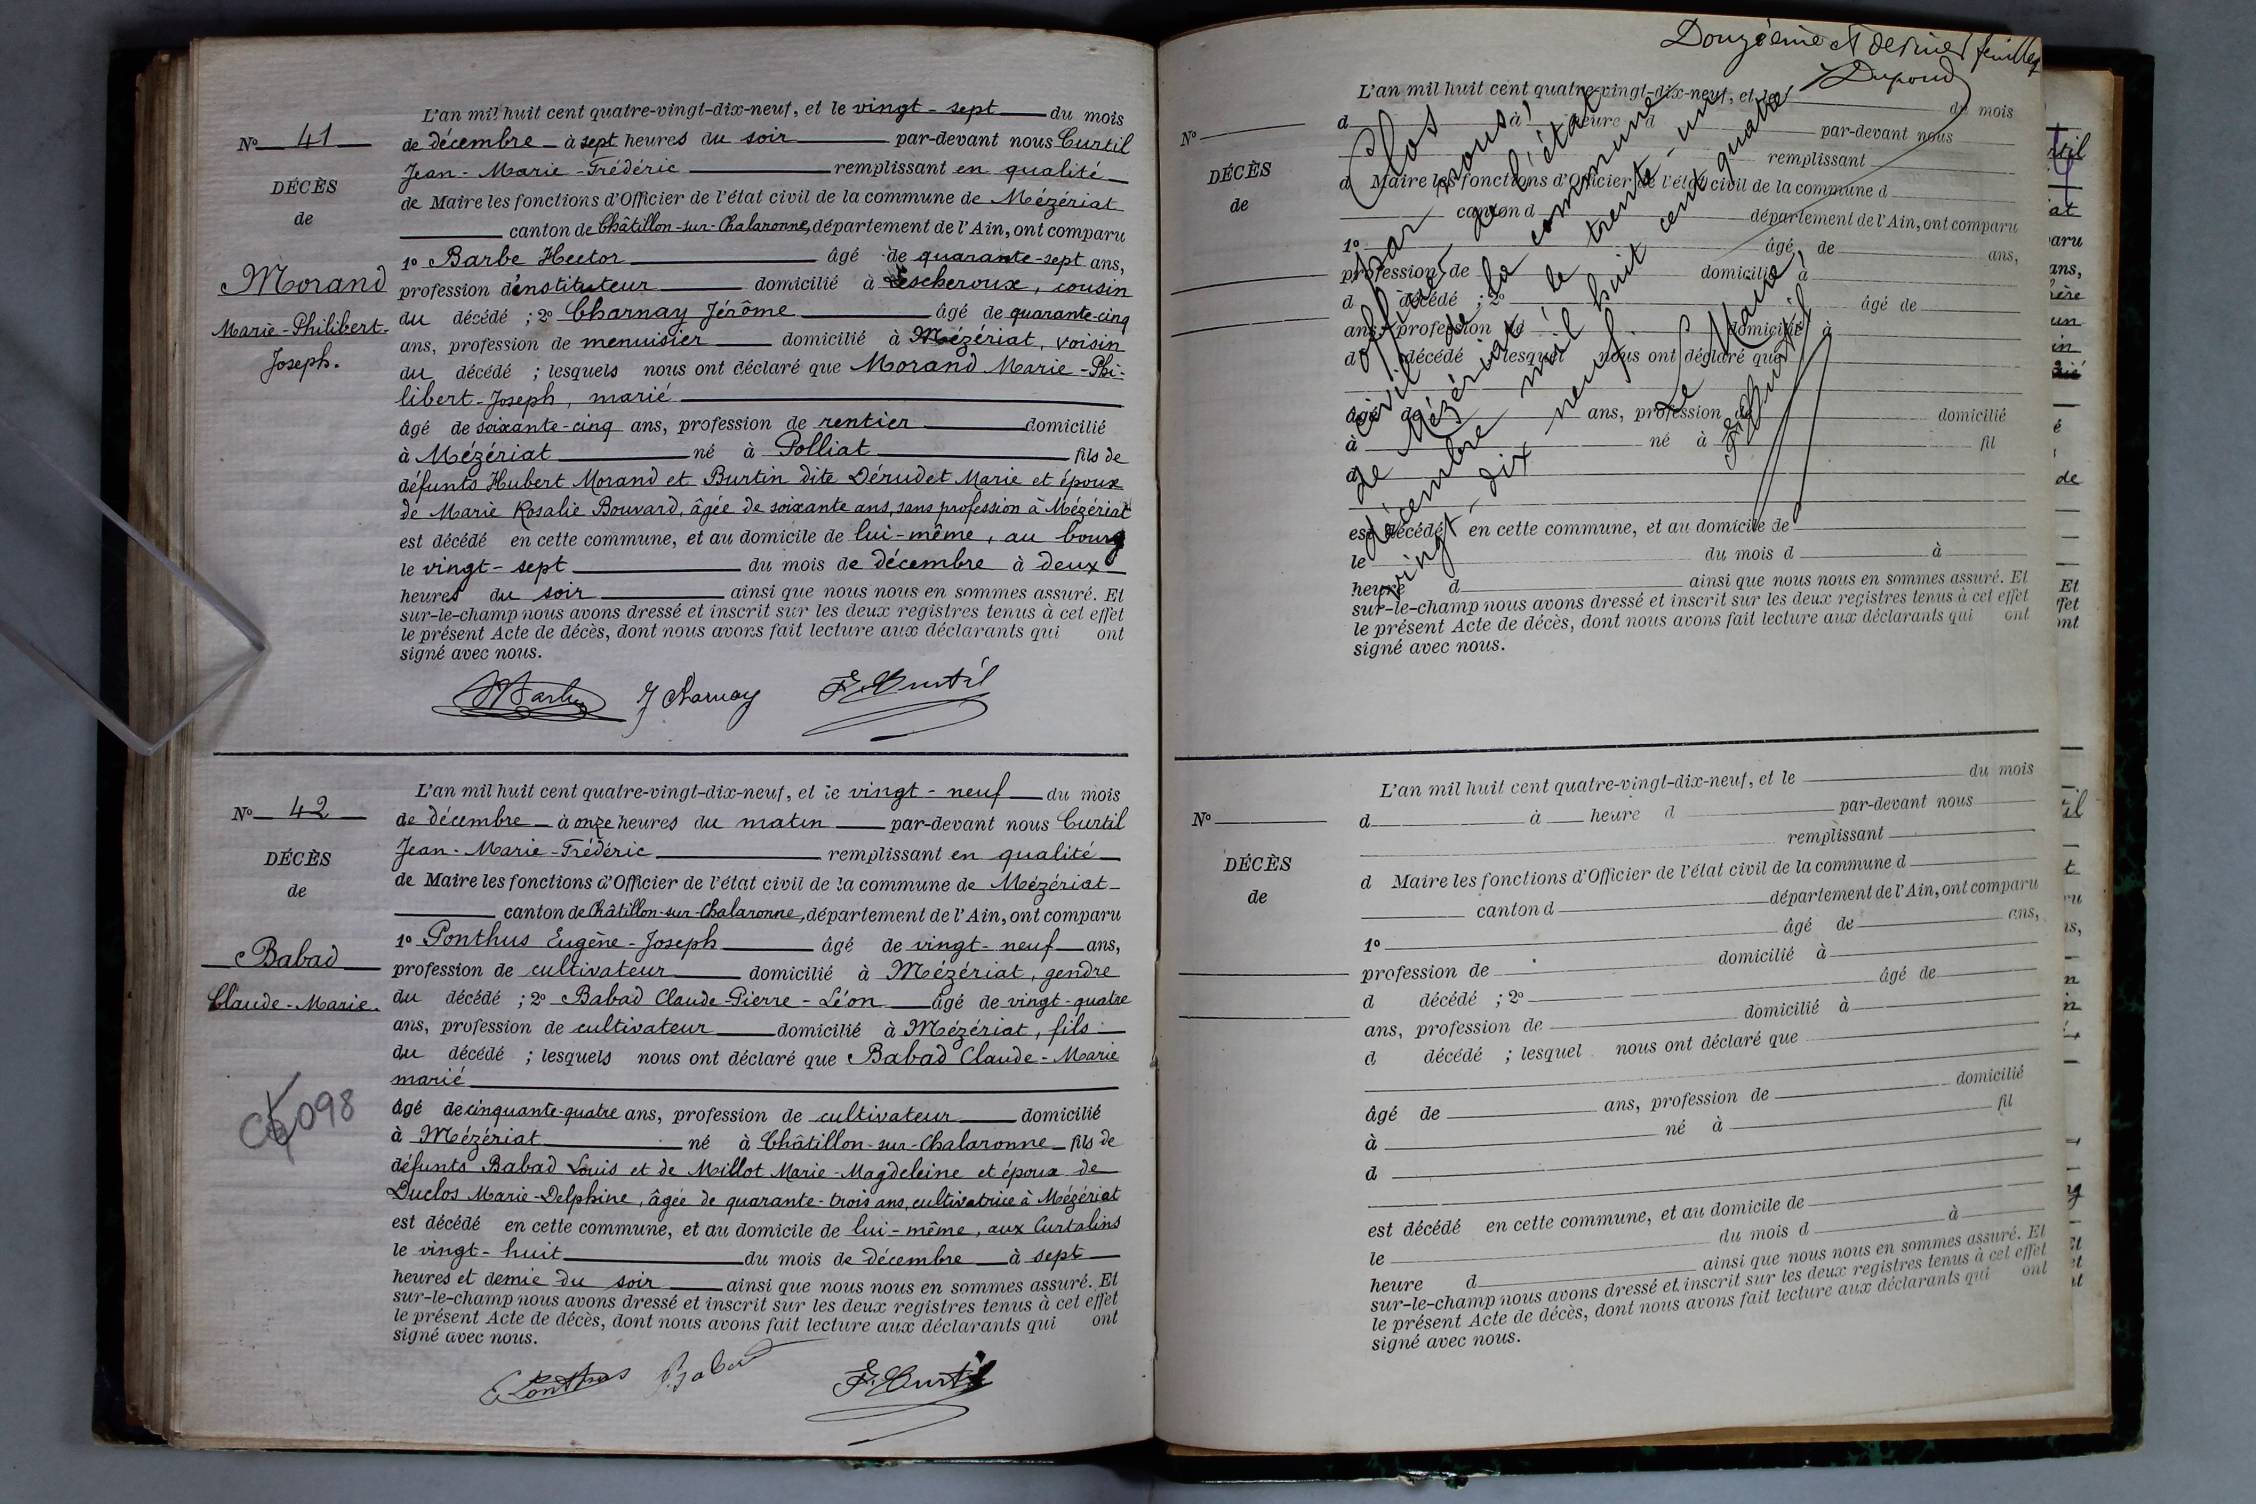 L'an mil huit cent quatre-vingt-dix-neuf, et le vingt-sept du mois
N° 41
de décembre à sept heures du soir par-devant nous Curtil
Jean-Marie-Frédéric remplissant en qualité
DÉCÈS
de Maire les fonctions d'Officier de l'état civil de la commune de Mézériat
de
canton de Châtillon-sur-Chalaronne, département de l'Ain, ont comparu
1° Barbe Hector âgé de quarante-sept ans,
Morand
profession d'instituteur domicilié à Lescheroux, cousin
Marie-Philibert-
du décédé ; 2° Charnay Jérôme âgé de quarante-cinq
ans, profession de menuisier domicilié à Mézériat, voisin
Joseph.
du décédé ; lesquels nous ont déclaré que Morand Marie-Phi-
libert-Joseph, marié
âgé de soixante-cinq ans, profession de rentier domicilié
à Mézériat né à Polliat fils de
défunts Hubert Morand et Burtin dite Dérudet Marie et époux
de Marie Rosalie Bouvard, âgée de soixante ans, sans profession à Mézériat
est décédé en cette commune, et au domicile de lui-même, au bourg
le vingt-sept du mois de décembre à deux
heures du soir ainsi que nous nous en sommes assuré. Et
sur-le-champ nous avons dressé et inscrit sur les deux registres tenus à cet effet
le présent Acte de décès, dont nous avons fait lecture aux déclarants qui ont
signé avec nous.
HBarbe J Charnay F. Curtil
L'an mil huit cent quatre-vingt-dix-neuf, et le vingt-neuf du mois
N° 42
de décembre à onze heures du matin par-devant nous Curtil
Jean-Marie-Frédéric remplissant en qualité
DÉCÈS
de Maire les fonctions d'Officier de l'état civil de la commune de Mézériat
de
canton de Châtillon-sur-Chalaronne, département de l'Ain, ont comparu
1° Ponthus Eugène-Joseph âgé de vingt-neuf ans,
Babad
profession de cultivateur domicilié à Mézériat, gendre
Claude-Marie.
du décédé ; 2° Babad Claude-Pierre-Léon âgé de vingt-quatre
ans, profession de cultivateur domicilié à Mézériat, fils
du décédé ; lesquels nous ont déclaré que Babad Claude-Marie
marié
098
âgé de cinquante-quatre ans, profession de cultivateur domicilié
à Mézériat né à Châtillon-sur-Chalaronne fils de
défunts Babad Louis et de Millot Marie-Magdeleine et époux de
Duclos Marie-Delphine, âgée de quarante-trois ans, cultivatrice à Mézériat
est décédé en cette commune, et au domicile de lui-même, aux Curtalins
le vingt-huit du mois de décembre à sept
heures et demie du soir ainsi que nous nous en sommes assuré. Et
sur-le-champ nous avons dressé et inscrit sur les deux registres tenus à cet effet
le présent Acte de décès, dont nous avons fait lecture aux déclarants qui ont
signé avec nous.
E Ponthus Babad F. Curtil
Douzième et dernier feuillet
Dupond
L'an mil huit cent quatre-vingt-dix-neuf, et le du mois
N°
d à heure d par-devant nous
remplissant
DÉCÈS
d Maire les fonctions d'Officier de l'état civil de la commune d
de
canton d département de l'Ain, ont comparu
1° âgé de ans,
profession de domicilié à
d décédé ; 2° âgé de
ans, profession de domicilié à
d décédé lesquel nous ont déclaré que
âgé de ans, profession d domicilié
à né à fil
d
est décédé en cette commune, et au domicile de
le du mois d à
heure d ainsi que nous nous en sommes assuré. Et
sur-le-champ nous avons dressé et inscrit sur les deux registres tenus à cet effet
le présent Acte de décès, dont nous avons fait lecture aux déclarants qui ont
signé avec nous.
Clos
par nous,
officier de l'état
civil de la commune
de Mézériat le trente-un
décembre mil huit cent quatre
vingt-dix neuf.
Le Maire,
F. Curtil
L'an mil huit cent quatre-vingt-dix-neuf, et le du mois
N°
d à heure d par-devant nous
remplissant
DÉCÈS
d Maire les fonctions d'Officier de l'état civil de la commune d
de
canton d département de l'Ain, ont comparu
1° âgé de ans,
profession de domicilié à
d décédé ; 2° âgé de
ans, profession de domicilié à
d décédé ; lesquel nous ont déclaré que
âgé de ans, profession de domicilié
à né à fil
d
est décédé en cette commune, et au domicile de
le du mois d à
heure d ainsi que nous nous en sommes assuré. Et
sur-le-champ nous avons dressé et inscrit sur les deux registres tenus à cet effet
le présent Acte de décès, dont nous avons fait lecture aux déclarants qui ont
signé avec nous.